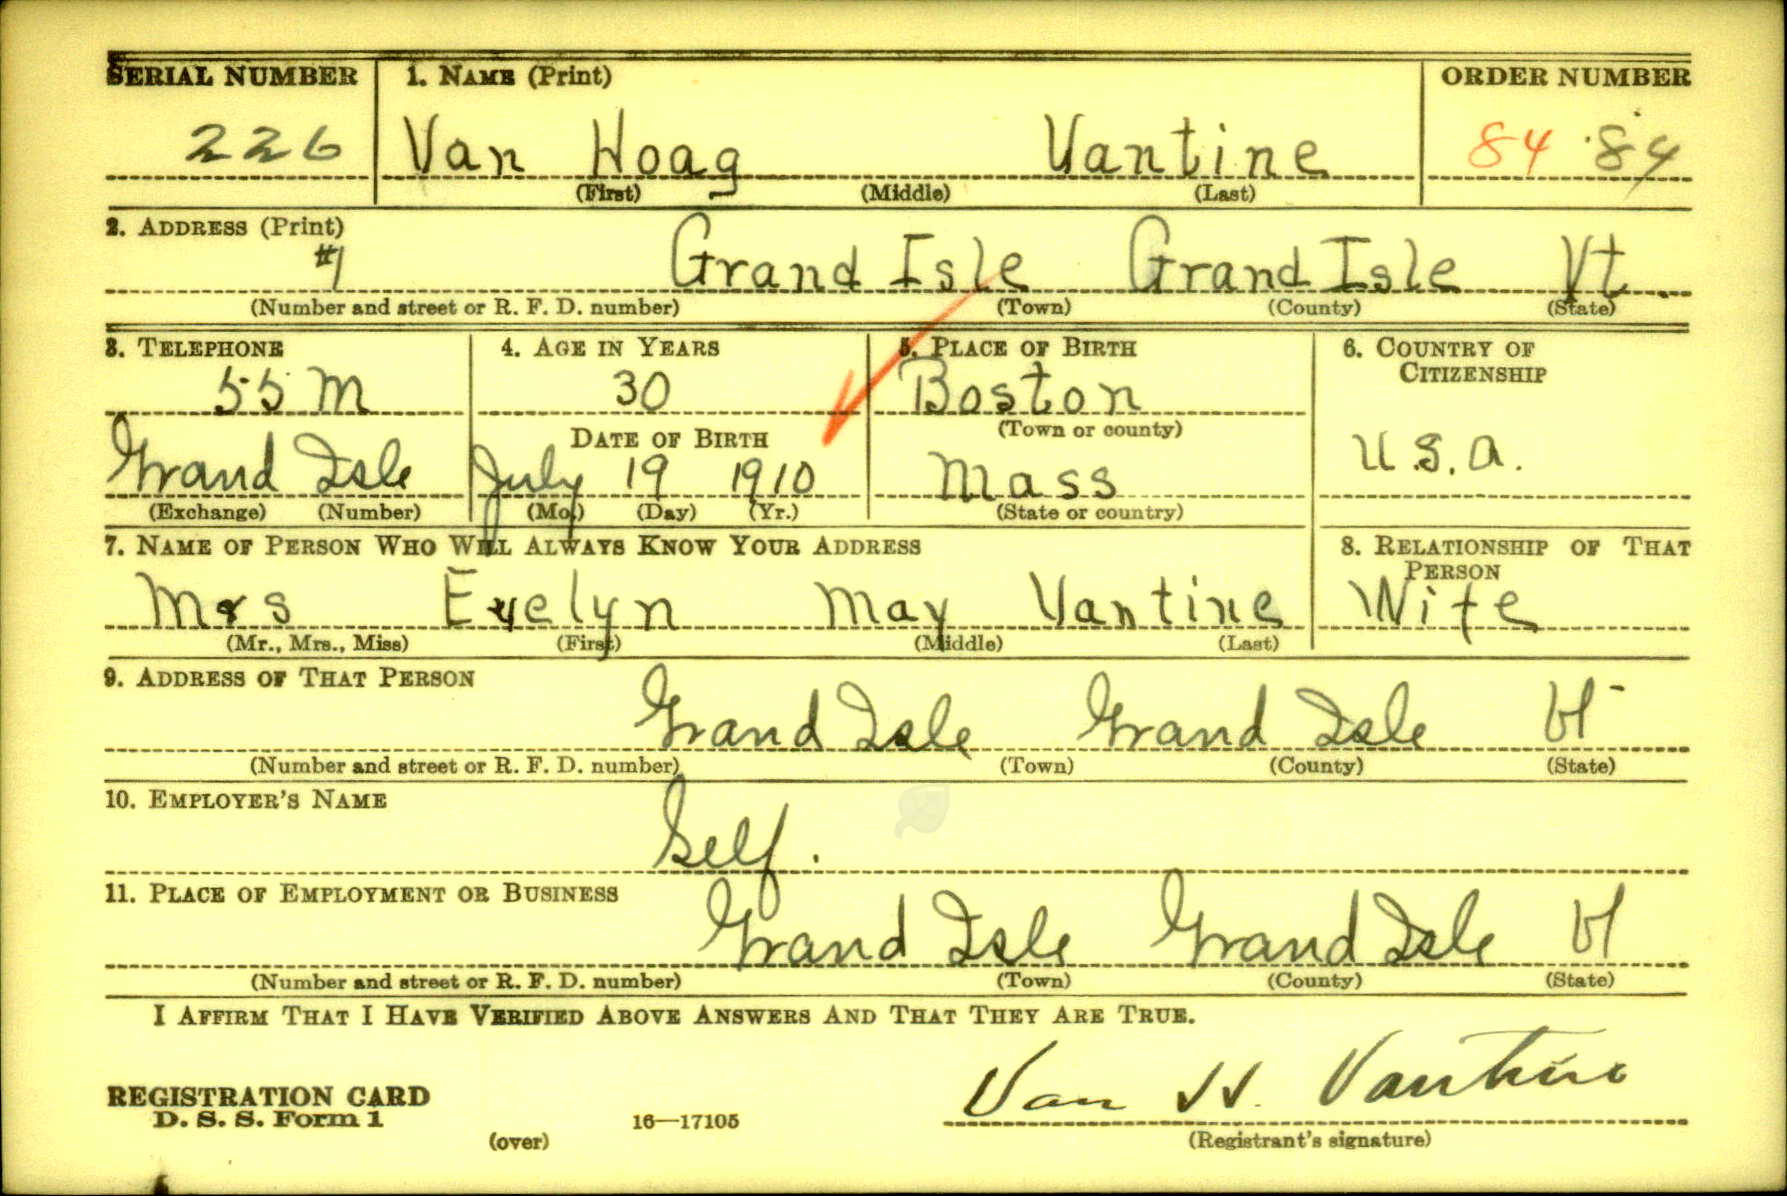 SERIAL NUMBER 1. NAME (Print) ORDER NUMBER
226 Van Hoag Vantine 84 84
(First) (Middle) (Last)
2. ADDRESS (Print)
#1 Grand Isle Grand Isle Vt.
(Number and street or R. F. D. number) (Town) (County) (State)
3. TELEPHONE 4. AGE IN YEARS 5. PLACE OF BIRTH 6. COUNTRY OF
CITIZENSHIP
55 M 30 Boston
DATE OF BIRTH (Town or county)
Grand Isle July 19 1910 Mass U.S.A.
(Exchange) (Number) (Mo.) (Day) (Yr.) (State or country)
7. NAME OF PERSON WHO WILL ALWAYS KNOW YOUR ADDRESS 8. RELATIONSHIP OF THAT
PERSON
Mrs Evelyn May Vantine Wife
(Mr., Mrs., Miss) (First) (Middle) (Last)
9. ADDRESS OF THAT PERSON
Grand Isle Grand Isle Vt
(Number and street or R. F. D. number) (Town) (County) (State)
10. EMPLOYER'S NAME
Self.
11. PLACE OF EMPLOYMENT OR BUSINESS
Grand Isle Grand Isle Vt
(Number and street or R. F. D. number) (Town) (County) (State)
I AFFIRM THAT I HAVE VERIFIED ABOVE ANSWERS AND THAT THEY ARE TRUE.
REGISTRATION CARD
D. S. S. Form 1 16—17105 Van H. Vantine
(over) (Registrant's signature)